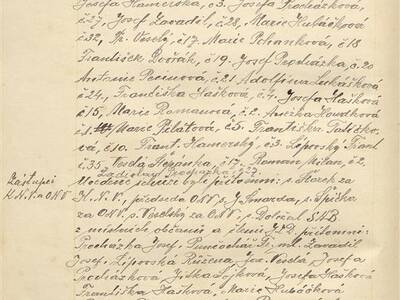 Josefa Kamerská, č 3. Josefa Procházková,
č.27, Josef Zavadil, č.28, Marie Hubáčková
č.32, Fr. Veselý, č.17. Marie Pchanková, č.18
František Dořák, č.19. Josef Procházka, č.20
Antonie Pecinová, č.21 Adolfina Lukášková
č.24, Františka Hašková, č.4. Josefa Hašková
č.15, Marie Romanová, č.2. Anežka Houdková
č.1. Marie Pilátová, č.5. Františka
vá, č.10. Frant. Kamerský, č.3. Lipovský Frant.
č.35, č.17. Roman Milan, č.2.
Ladislav Procházka č.27.
Zástupci
K.N.V. a O.N.V.
schůze byli přítomni: s. Horek za
K.N.V., předseda ONV s. J. Smarda, s. Spička
za ONV. s. Veselský za O.N.V. s. Doležal S.N.B
z místních občanů a členů J.Z.D. přítomni:
Procházka Josef, Punčochář Fr. ml. Zavadil
Josef, Lipovská Růžena, Josefa
Procházková, Josefa Hašková
Františka Hašková, Marie Hubáčková